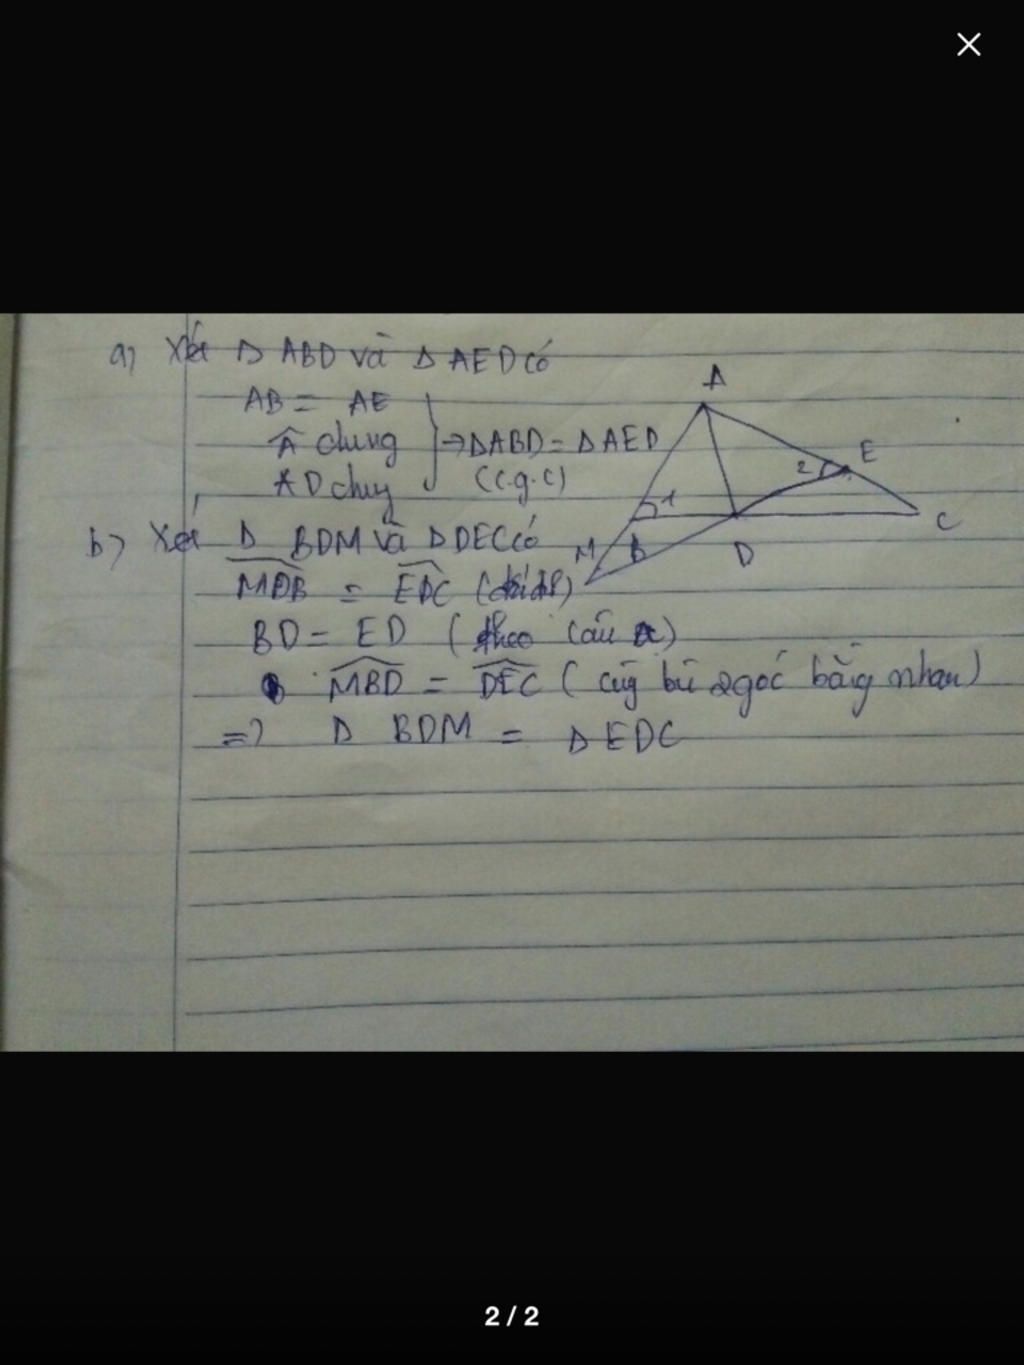 a) Xét Δ ABD và Δ AED có
AB = AE
Â chung
AD chug
} => ΔABD = ΔAED
(c.g.c)
A
E
2
1
C
M
B
D
b) Xét Δ BDM và Δ DEC có
MDB = EDC (đối đỉ)
BD = ED (theo câu a)
MBD = DEC (cùg bù 2góc bằg nhau)
=> Δ BDM = Δ EDC
2 / 2